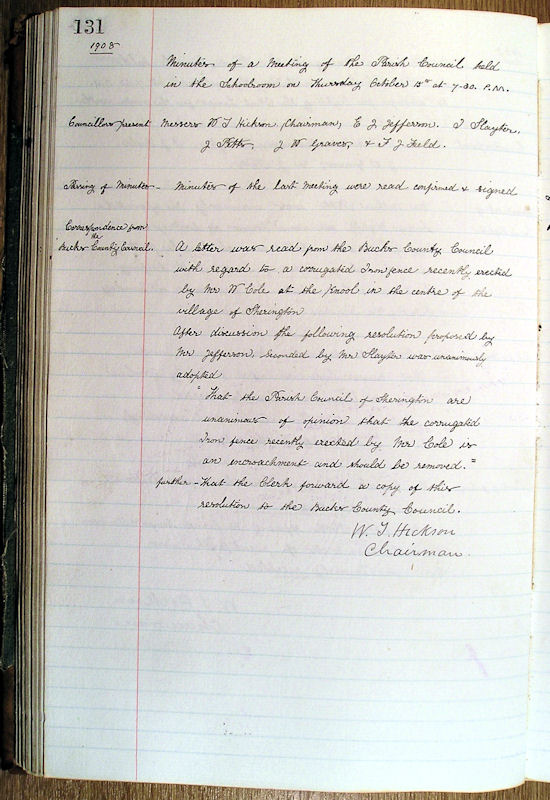 131
1908
Minutes of a Meeting of the Parish Council held
in the Schoolroom on Thursday October 15th at 7-30. P.M.
Councillors present Messers W J Hickson, Chairman, E J Jefferson. J Slayter,
J Pitts, J W Graves, & F J Field.
Passing of Minutes - Minutes of the last Meeting were read confirmed & signed
Correspondence from
the
Bucks County Council. A letter was read from the Bucks County Council
with regard to a corrugated Iron fence recently erected
by Mr W Cole at the Knool in the centre of the
village of Sherington
After discussion the following resolution proposed by
Mr Jefferson, seconded by Mr Slayter was unanimously
adopted
"That the Parish Council of Sherington are
unanimous of opinion that the corrugated
Iron fence recently erected by Mr Cole is
an encroachment and should be removed."
further - That the Clerk forward a copy of this
resolution to the Bucks County Council.
W. J. Hickson
Chairman.